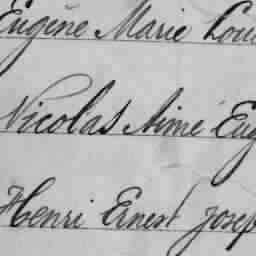 Eugène Marie Lou
Nicolas Aimé Eug
Henri Ernest Josep